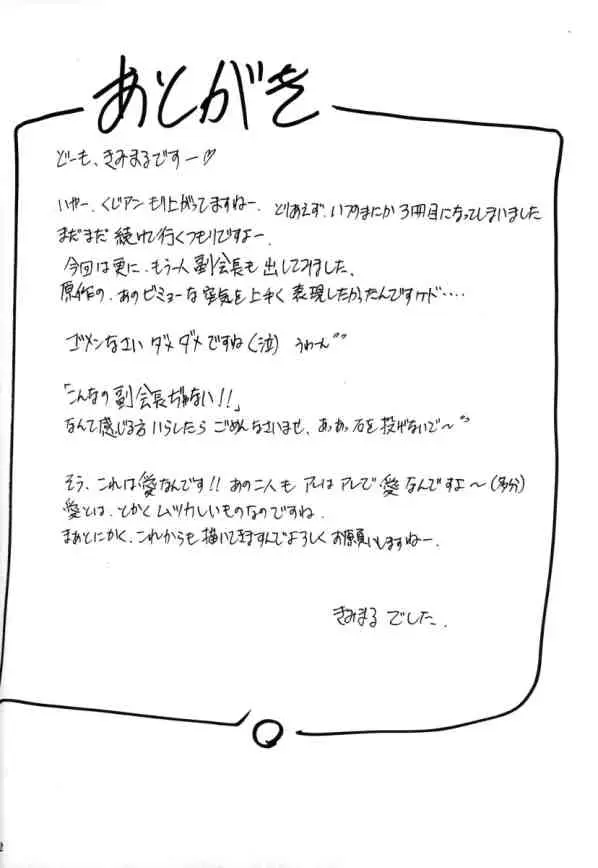 あとがき
どーも、きみまるですー♡
いやー、くじアンもり上がってますねー。とりあえず、いつのまにか3冊目になってしまいました
まだまだ続けて行くつもりですよー。
今回は更に、もう一人副会長も出してみました。
原作の、あのビミョーな空気を上手く表現したかったんですケド‥‥
ゴメンなさいダメダメですね(泣) うわーん
「こんなの副会長ぢゃない!!」
なんて感じる方いらしたらごめんなさいませ、ああっ石を投げないで〜
そう、これは愛なんです!! あの二人もアレはアレで愛なんですよ〜(多分)
愛とは、とかくムツカしいものなのですね。
まぁとにかく、これからも描いてきますんでよろしくお願いしますねー。
きみまるでした。
2